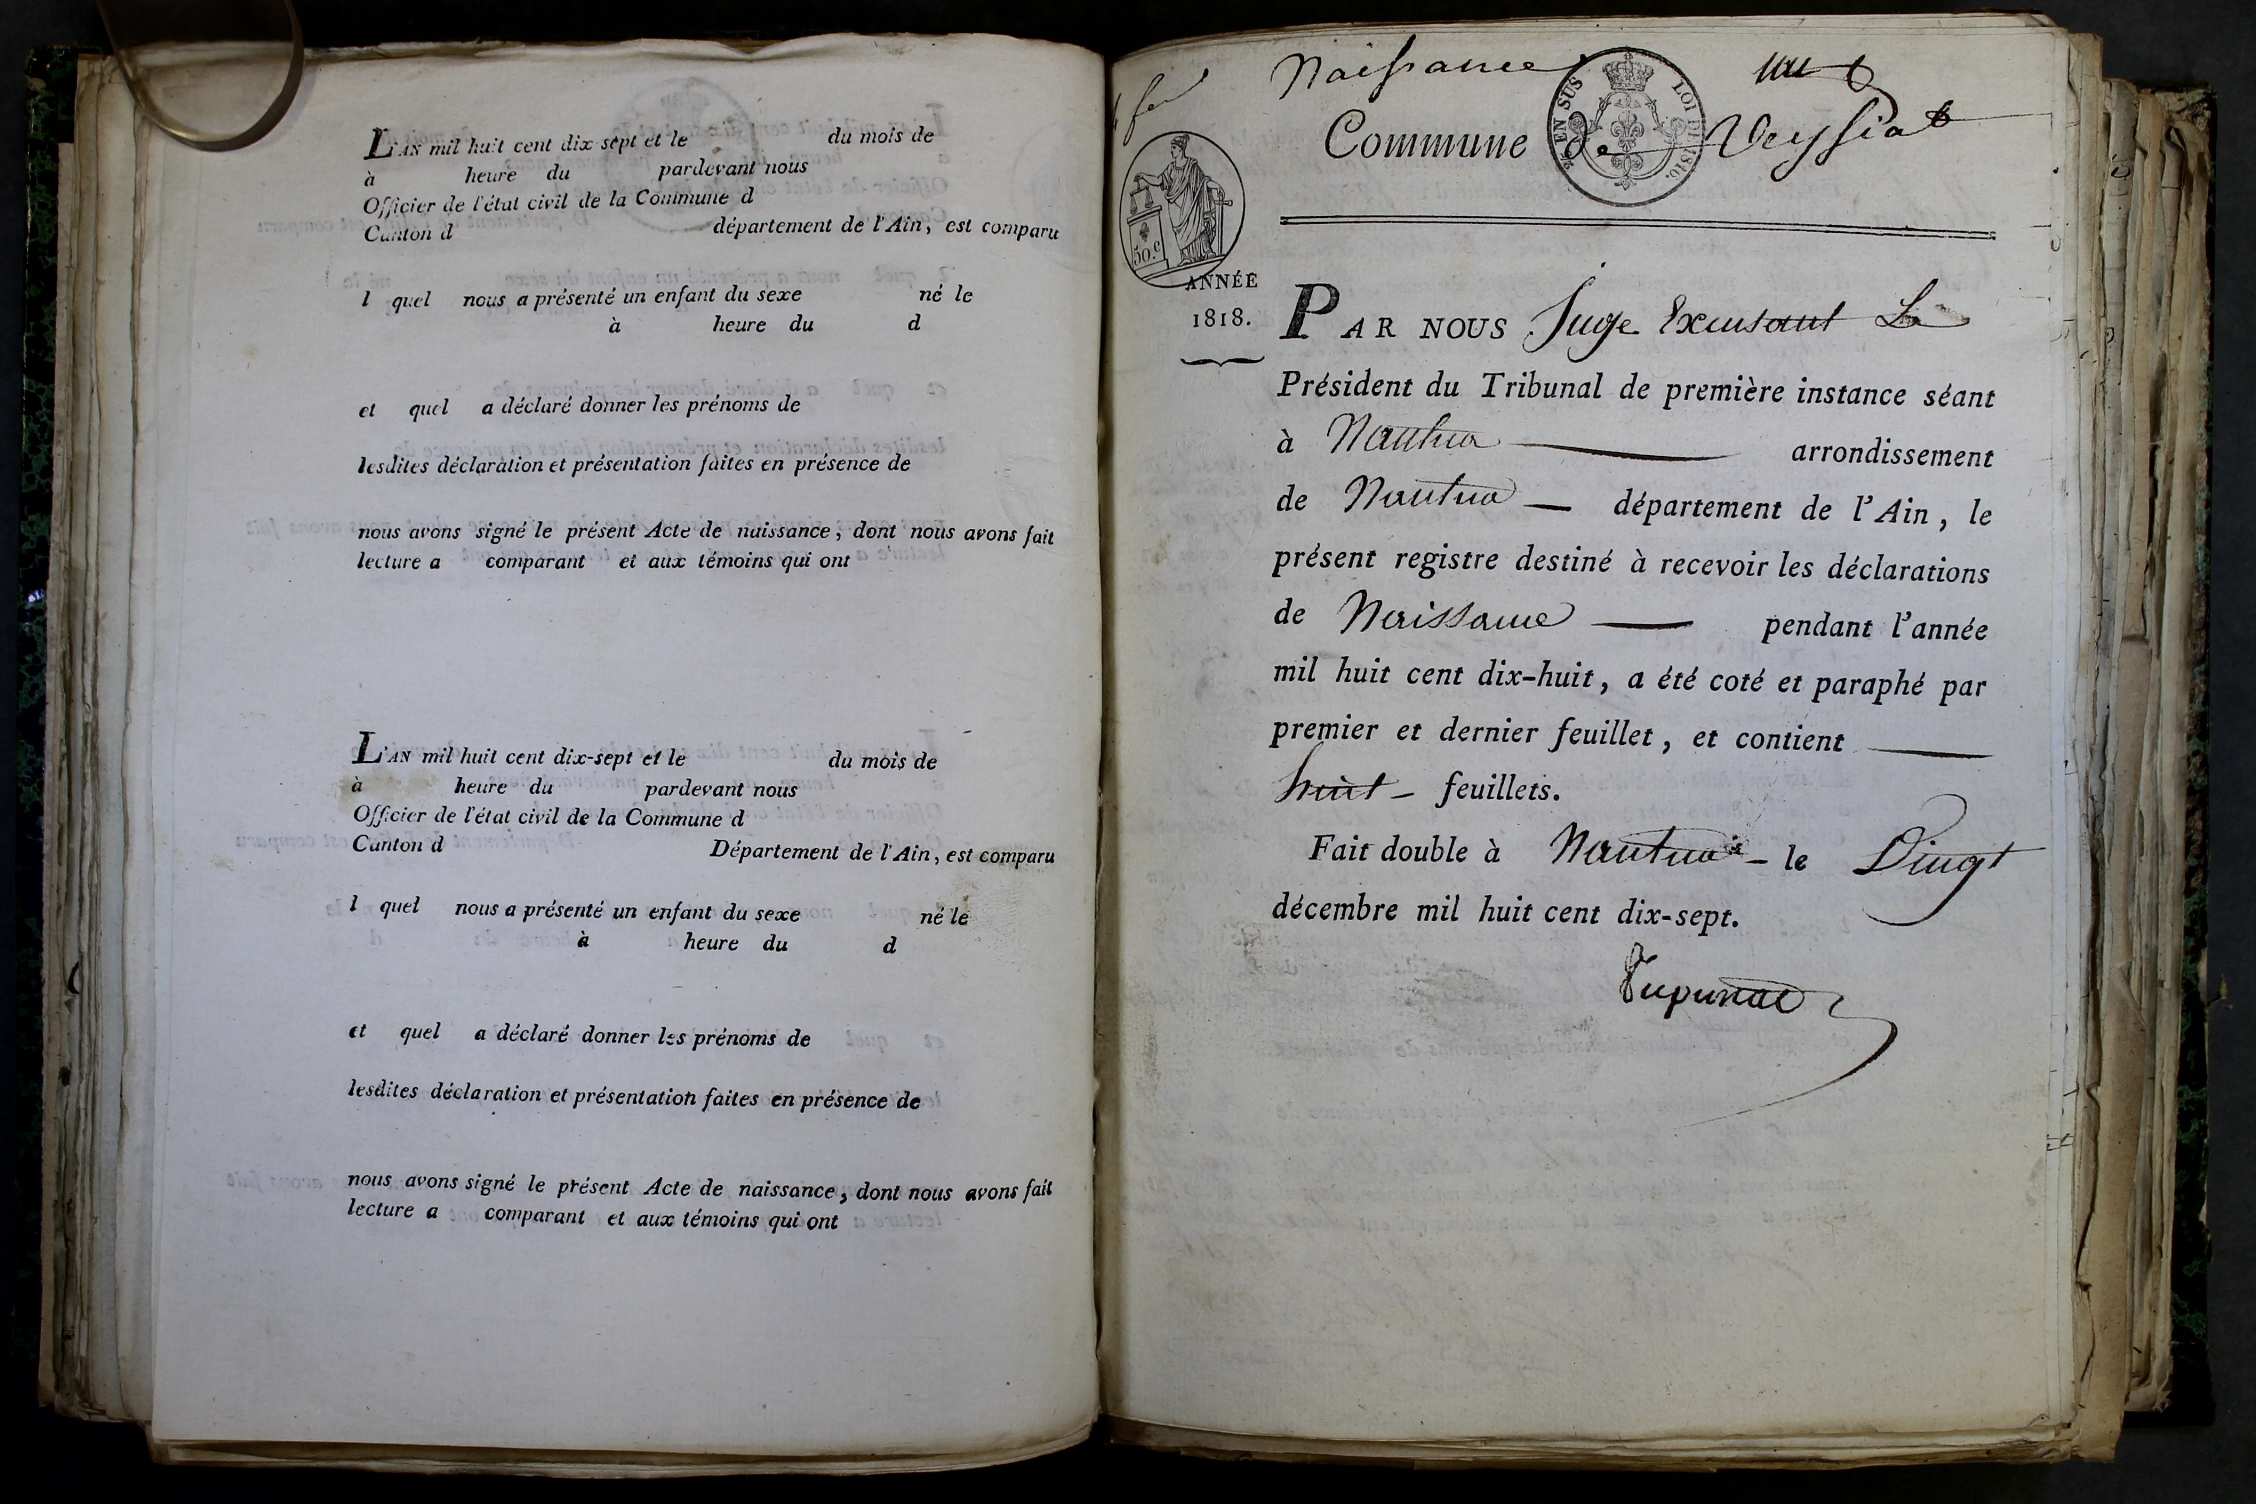 L'AN mil huit cent dix-sept et le du mois de
à heure du pardevant nous
Officier de l'état civil de la Commune d
Canton d département de l'Ain, est comparu
l quel nous a présenté un enfant du sexe né le
à heure du d
et quel a déclaré donner les prénoms de
lesdites déclaration et présentation faites en présence de
nous avons signé le présent Acte de naissance, dont nous avons fait
lecture a comparant et aux témoins qui ont
L'AN mil huit cent dix-sept et le du mois de
à heure du pardevant nous
Officier de l'état civil de la Commune d
Canton d Département de l'Ain, est comparu
l quel nous a présenté un enfant du sexe né le
à heure du d
et quel a déclaré donner les prénoms de
lesdites déclaration et présentation faites en présence de
nous avons signé le présent Acte de naissance, dont nous avons fait
lecture a comparant et aux témoins qui ont
Naissance
EN SUS LOI DE 1816.
Commune de Veyssiat
50.c
ANNÉE
1818.
PAR NOUS Juge Exersant Le
Président du Tribunal de première instance séant
à Nantua arrondissement
de Nantua — département de l'Ain, le
présent registre destiné à recevoir les déclarations
de Naissance — pendant l'année
mil huit cent dix-huit, a été coté et paraphé par
premier et dernier feuillet, et contient —
huit — feuillets.
Fait double à Nantua — le Vingt
décembre mil huit cent dix-sept.